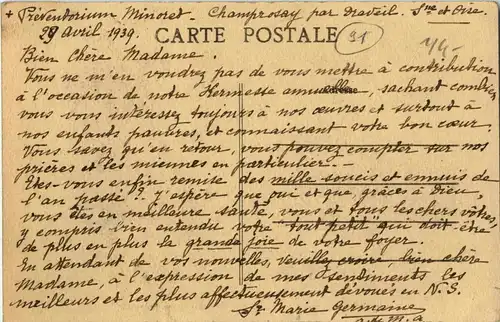 + Préventorium Minoret - Champrosay par Draveil. S.ne et Oise
29 Avril 1939. CARTE POSTALE 91
Bien Chère Madame.
Vous ne m'en voudrez pas de vous mettre à contribution
à l'occasion de notre Kermesse annuelle, sachant combien
vous vous intéressez toujours à nos œuvres et surtout à
nos enfants pauvres, et connaissant votre bon cœur.
Vous savez qu'en retour, vous pouvez compter sur nos
prières et les miennes en particulier. -
Êtes-vous enfin remise des mille soucis et ennuis de
l'an passé ? J'espère que oui et que, grâces à Dieu,
vous êtes en meilleure santé, vous et tous les chers vôtres,
y compris bien entendu votre tout petit qui doit être
de plus en plus la grande joie de votre foyer.
En attendant de vos nouvelles, veuillez croire bien chère
Madame, à l'expression de mes sentiments les
meilleurs et les plus affectueusement dévoués en N.S.
Sr Marie Germaine